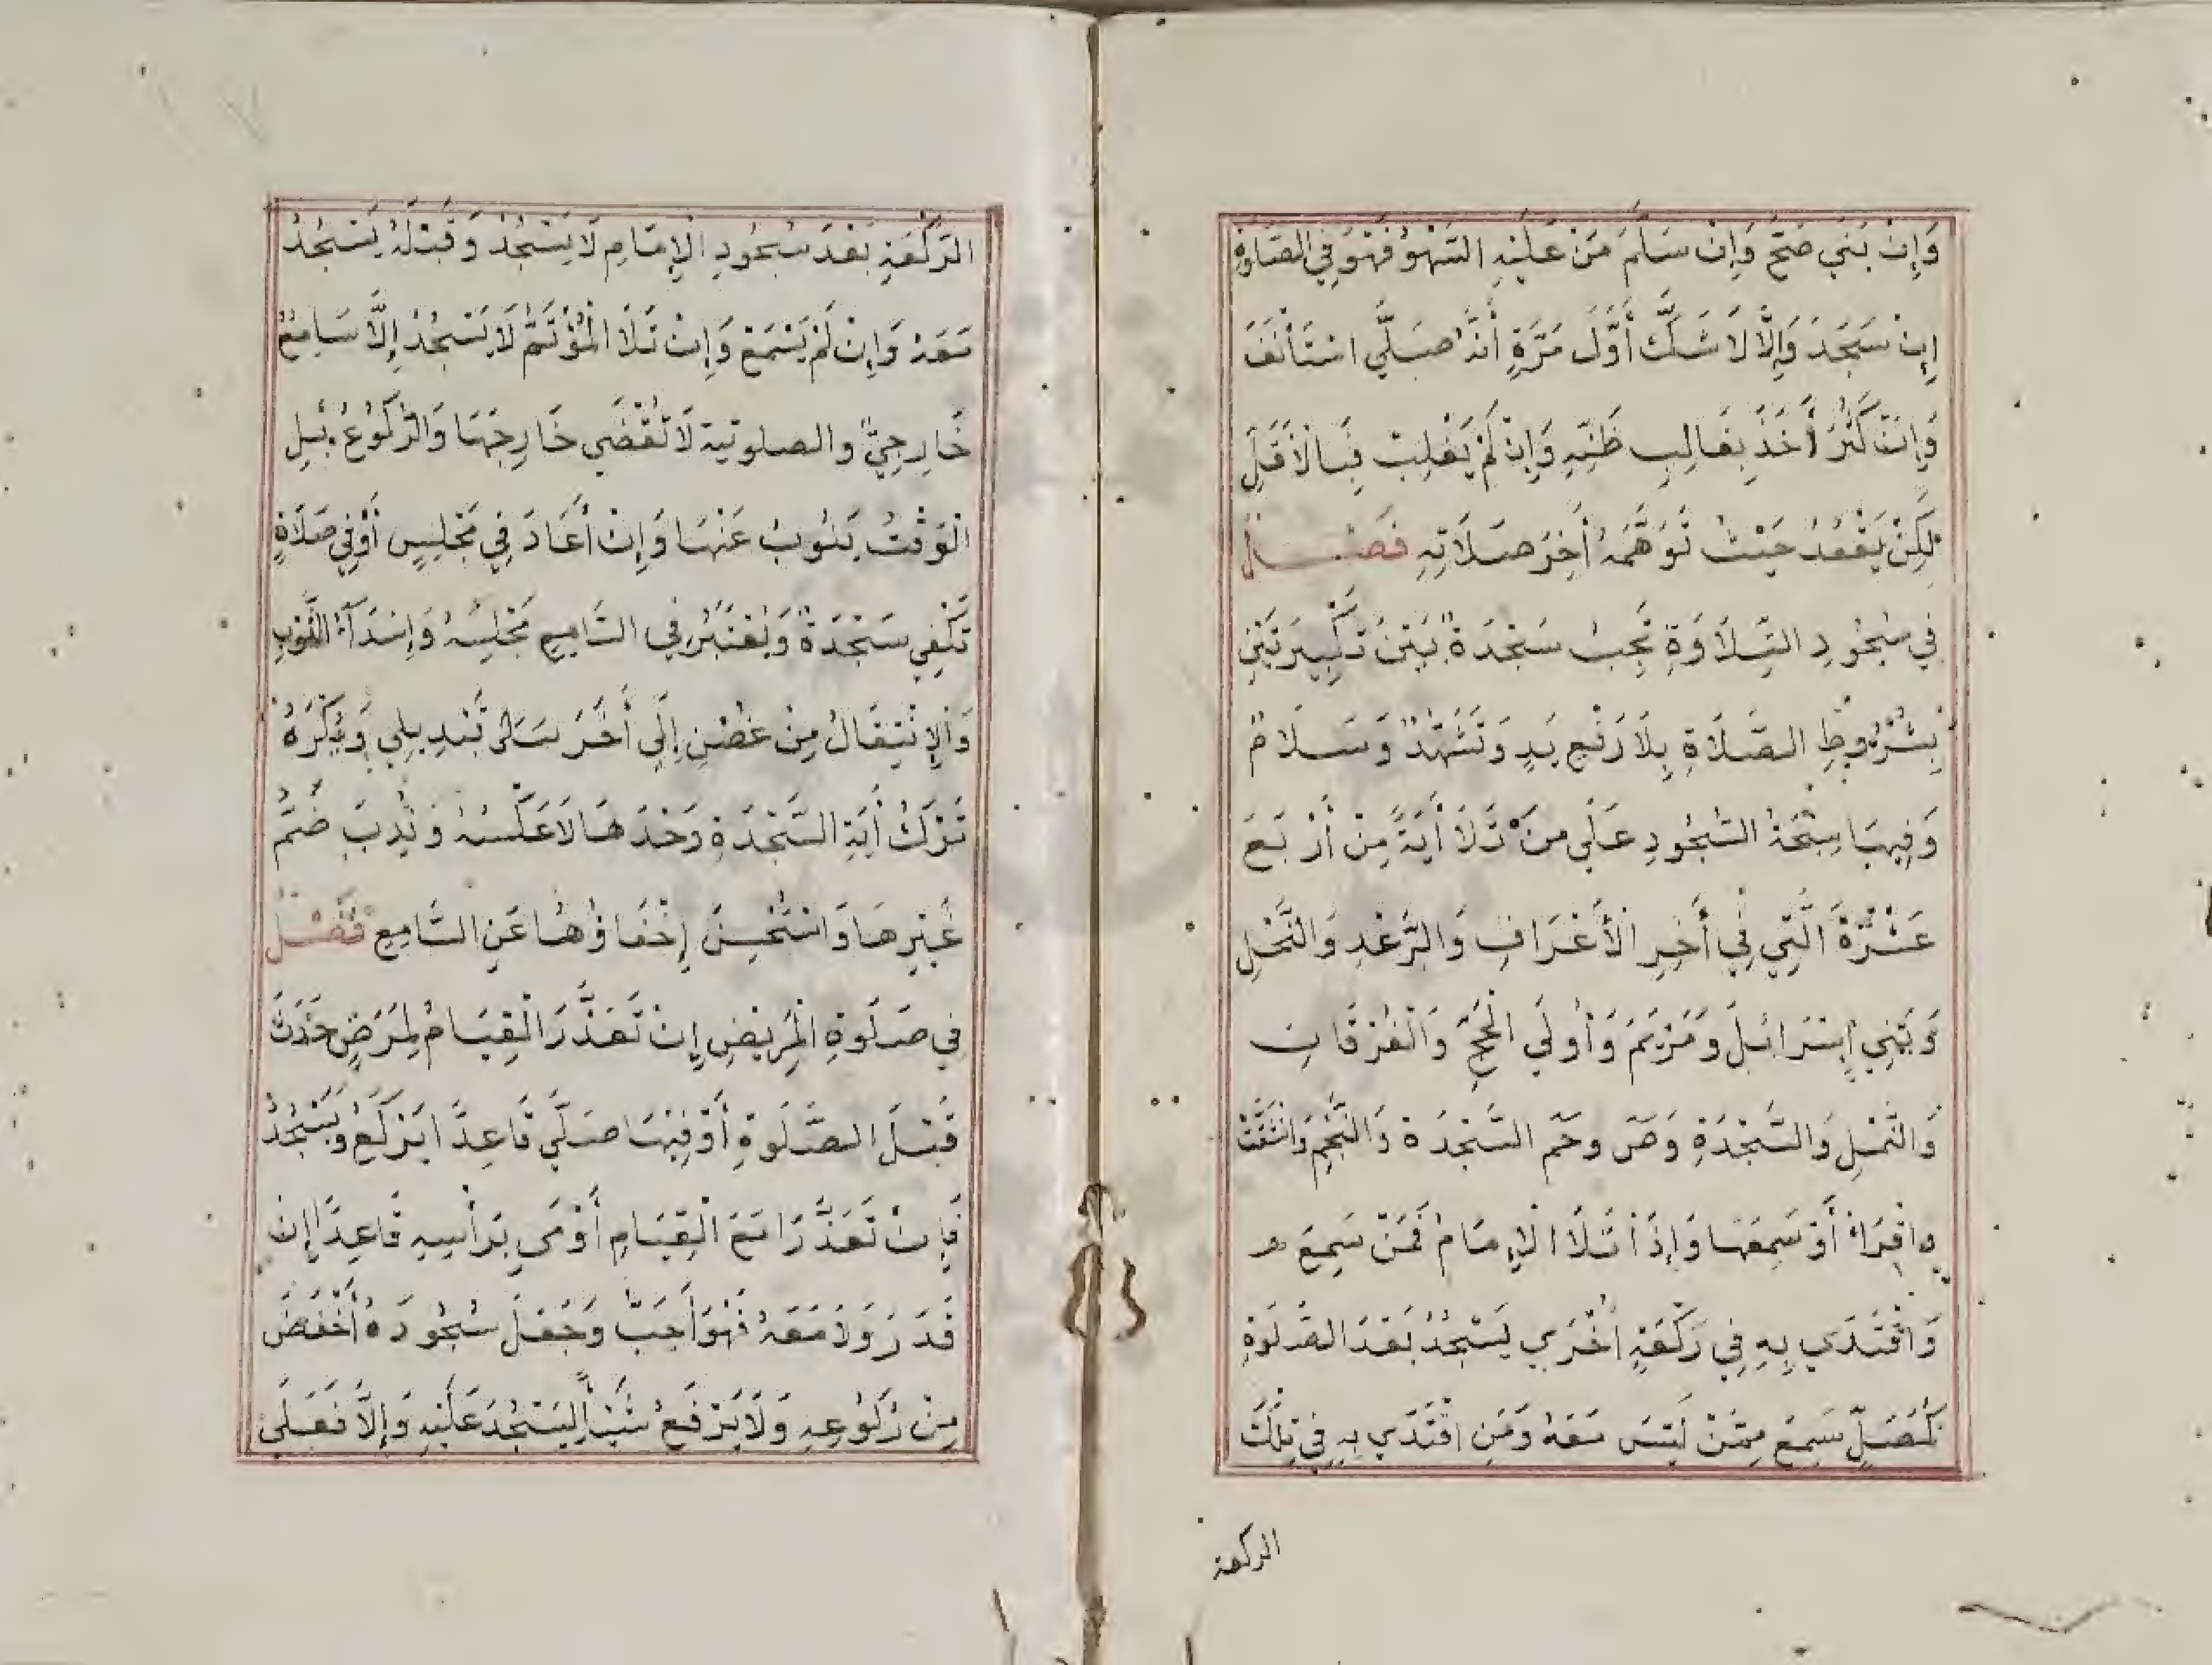 وَإِنْ بَنَي صَحَّ وَإِنْ سَلَّمَ مَنْ عَلَيْهِ السَّهْوُ فَهْوَ فِي الصَّلوةِ
إِنْ سَجَدَ وَإِلَّا لَا شَكَّ أَوَّلَ مَرَّةٍ أَنَّهُ صَلَّي اسْتَأْنَفَ
وَإِنْ كَثُرَ أَخَذَ بِغَالِبِ ظَنِّهِ وَإِنْ لَمْ يَغْلِبْ فَبِالْأَقَلِّ
لَكِنْ يَقْعُدُ حَيْثُ تَوَهَّمَهُ أَخِرُ صَلَاتِهِ فَصْـــلٌ
فِي سُجُودِ التِّلَاوَةِ تَجِبُ سَجْدَةٌ بَيْنَ تَكْبِيرَتَيْنِ
بِشُرُوطِ الصَّلَاةِ بِلَا رَفْعِ يَدٍ وَتَشَهُّدٌ وَسَلَامٌ
وَفِيهَا سُبْحَةُ السُّجُودِ عَلَي مَنْ تَلَا أَيَةً مِنْ أَرْبَعَ
عَشْرَةَ الَّتِي فِي أَخِرِ الْأَعْرَافِ وَالرَّعْدِ وَالنَّحْلِ
وَبَنِي إِسْرَائِلَ وَمَرْيَمَ وَأُولَي الْحَجِّ وَالْفُرْقَانِ
وَالنَّمْلِ وَالسَّجْدَةِ وَصۤ وحۤم السَّجْدَة وَالنَّجْمِ وَانْشَقَّتْ
واقْرَاْ أَوْ سَمِعَهَا وَإِذَا تَلَا الْإِمَامُ فَمَنْ سَمِعَ
وَاقْتَدَي بِهِ فِي رَكْعَةٍ أُخْرَي يَسْجُدُ بَعْدَ الصَّلَوةِ
كَمُصَلٍّ سَمِعَ مِمَّنْ لَيْسَ مَعَهُ وَمَنِ اقْتَدَي بِهِ فِي تِلْكَ
الركعة
الرَّكْعَةِ بَعْدَ سُجُودِ الْإِمَامِ لَا يَسْجُدُ وَقَبْلَهُ يَسْجُدُ
مَعَهُ وَإِنْ لَمْ يَسْمَعْ وَإِنْ تَلَا الْمُؤْتَمُّ لَا يَسْجُدُ إِلَّا سَامِعٌ
خَارِجِيٌّ والصلوتية لَا تُقْضَي خَارِجَهَا وَالرُّكُوعُ بِلِ
الْوَقْتُ يَنُوبُ عَنْهَا وَإِنْ أَعَادَ فِي مَجْلِسٍ أَوْ فِي صَلَاةٍ
تَكْفِي سَجْدَةٌ وَيُعْتَبَرُ فِي السَّامِعِ مَجْلِسُهُ وَإِسْدَآءُ الثَّوْبِ
وَالْإِنْتِقَالُ مِنْ غُصْنٍ إِلَي أَخَرَ تَبْدِيلِي وَيُكْرَهُ
تَرْكُ أَيَةِ السَّجْدَةِ وَحْدَهَا لَا عَكْسُهُ وَنُدِبَ ضَمُّ
غَيْرِهَا وَاسْتُحْسِنَ إِخْفَاؤُهُا عَنِ السَّامِعِ فَصْـلٌ
فِي صَلَوةِ الْمَرِيْضِ إِنْ تَعَذَّرَ الْقِيَامُ لِمَرَضٍ حَدَثَ
قَبْلَ الصَّلَوةِ أَوْ فِيْهَا صَلَّي قَاعِدًا يَرْكَعُ وَيَسْجُدُ
فَإِنْ تَعَذَّرَا مَعَ الْقِيَامِ أَوْمَي بَرَأْسِهِ قَاعِدًا إِنْ
قَدَرَ وَلَا مَعَهُ فَهْوَ أَحَبُّ وَجَعَلَ سُجُودَهُ أَخْفَضَ
مِنْ رُكُوْعِهِ وَلَا يَرْفَعُ شَيْأً لِيَسْجُدَ عَلَيْهِ وَإِلَّا فَعَلَي